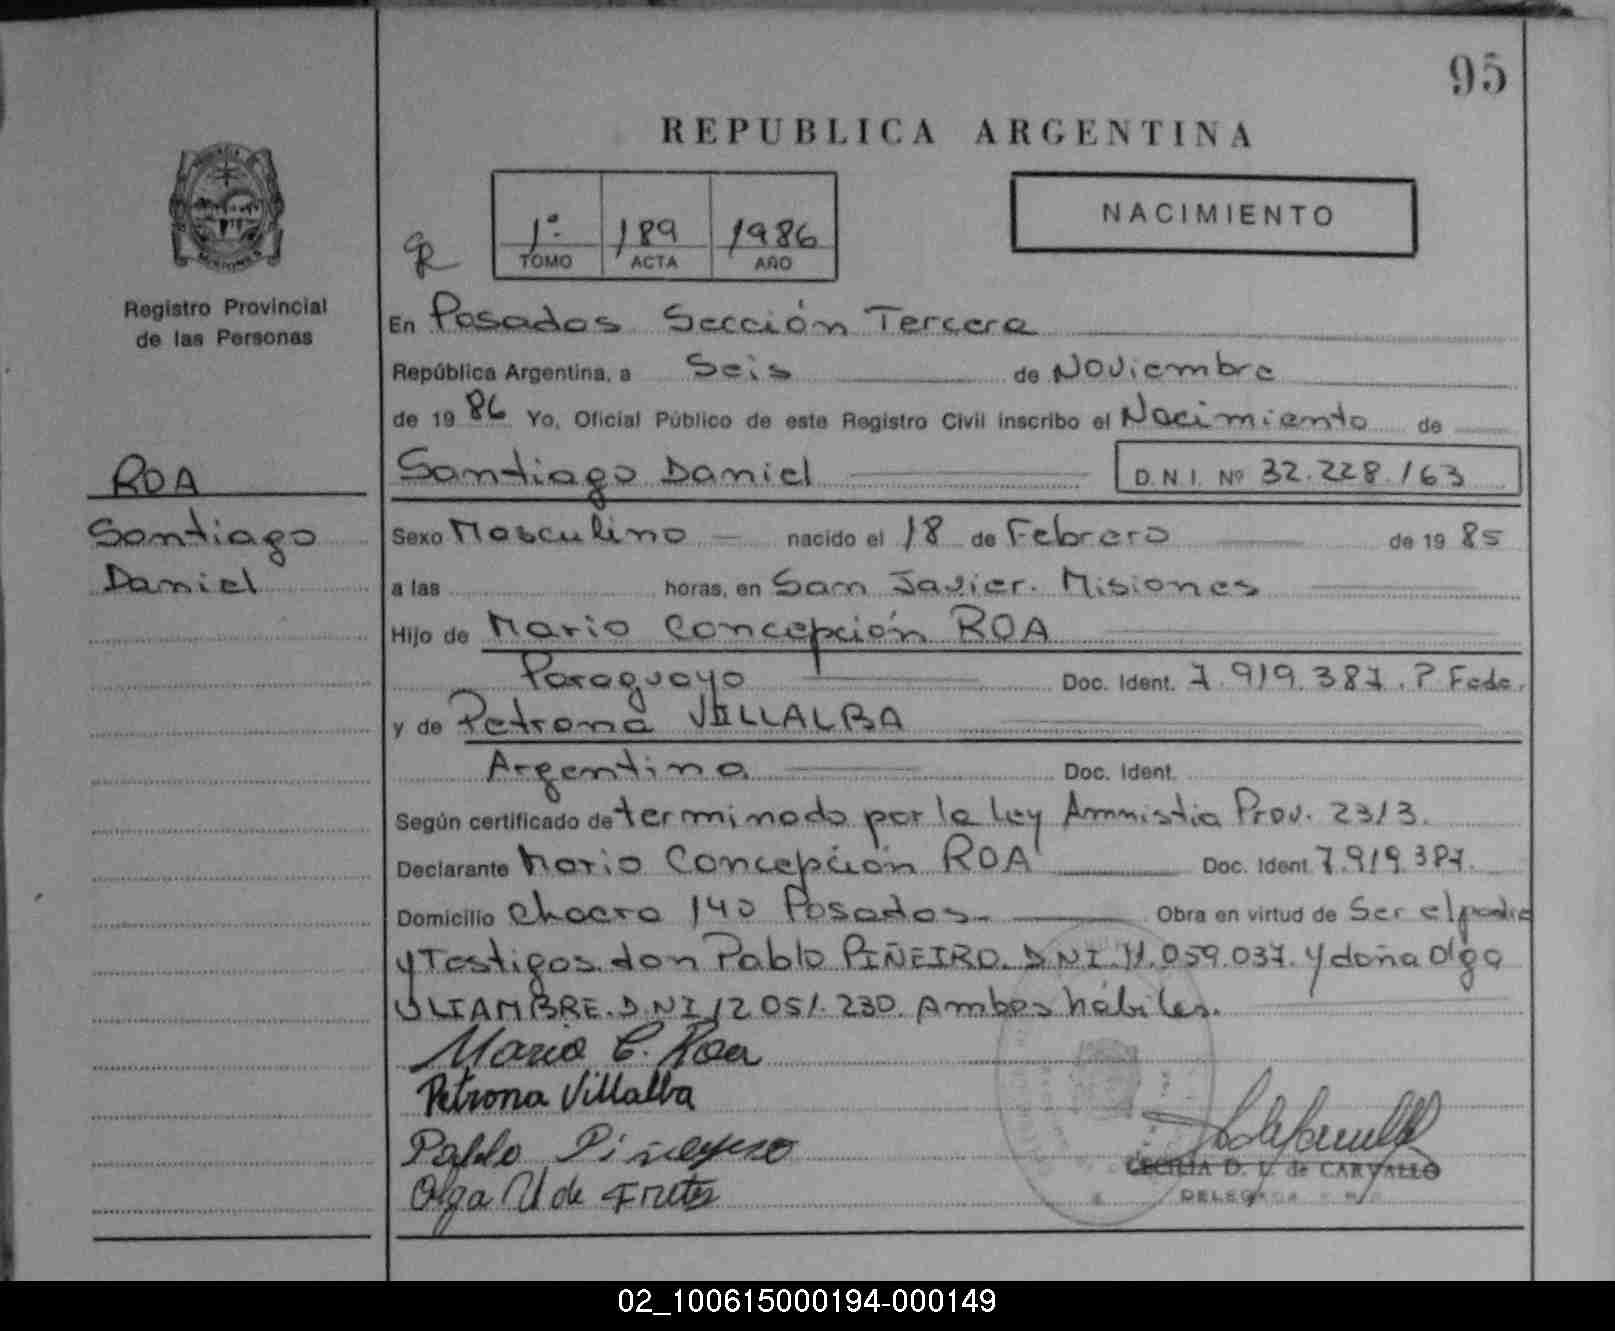 95
REPUBLICA ARGENTINA
1º 189 1986
TOMO ACTA AÑO
NACIMIENTO
Registro Provincial
de las Personas
ROA
Santiago
Daniel
En Posadas Sección Tercera
República Argentina, a Seis de Noviembre
de 19 86 Yo, Oficial Público de este Registro Civil inscribo el Nacimiento de
Santiago Daniel D.N.I. Nº 32.228.163
Sexo Masculino nacido el 18 de Febrero de 19 85
a las horas, en San Javier. Misiones
Hijo de Mario Concepción ROA
Paraguayo Doc. Ident. 7.919.387. P Fede.
y de Petrona VILLALBA
Argentina Doc. Ident.
Según certificado de terminado por la ley Amnistia Prov. 2313.
Declarante Mario Concepción ROA Doc. Ident. 7.919.387.
Domicilio Chacra 140 Posadas. Obra en virtud de Ser el padre
y Testigos. don Pablo PIÑEIRO. DNI. 11.059.037. y doña Olga
ULIAMBRE. DNI 12.051.230. Ambos hábiles.
Mario C. Roa
Petrona Villalba
Pablo Piñeyro
Olga U de Fretes
CECILIA D. L. de CARVALLO
DELEGADA
02_100615000194-000149